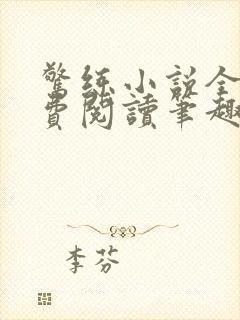 驚綠小說全
費閱讀筆趣
李芬